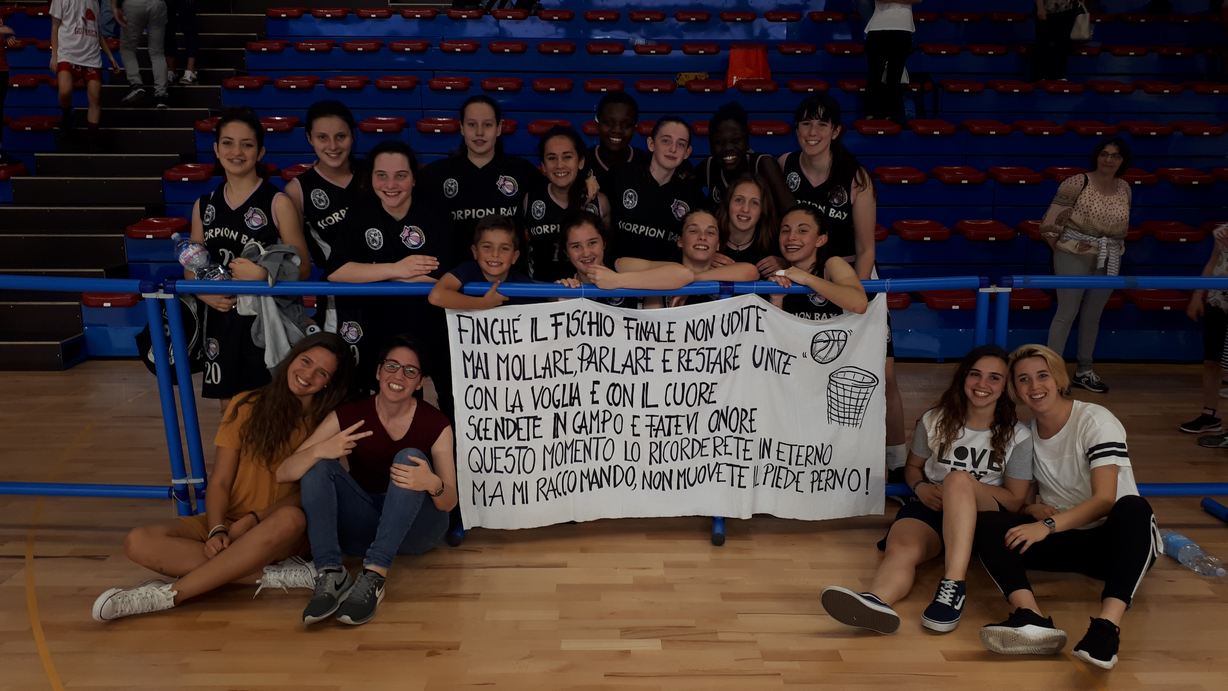 SCORPION BAY
KORPION BAY
SCORPION BAY
SCORPION BAY
20
FINCHÉ IL FISCHIO FINALE NON UDITE
MAI MOLLARE, PARLARE E RESTARE UNITE "
CON LA VOGLIA E CON IL CUORE
SCENDETE IN CAMPO E FATEVI ONORE
QUESTO MOMENTO LO RICORDERETE IN ETERNO
MA MI RACCOMANDO, NON MUOVETE IL PIEDE PERNO!
LOVE